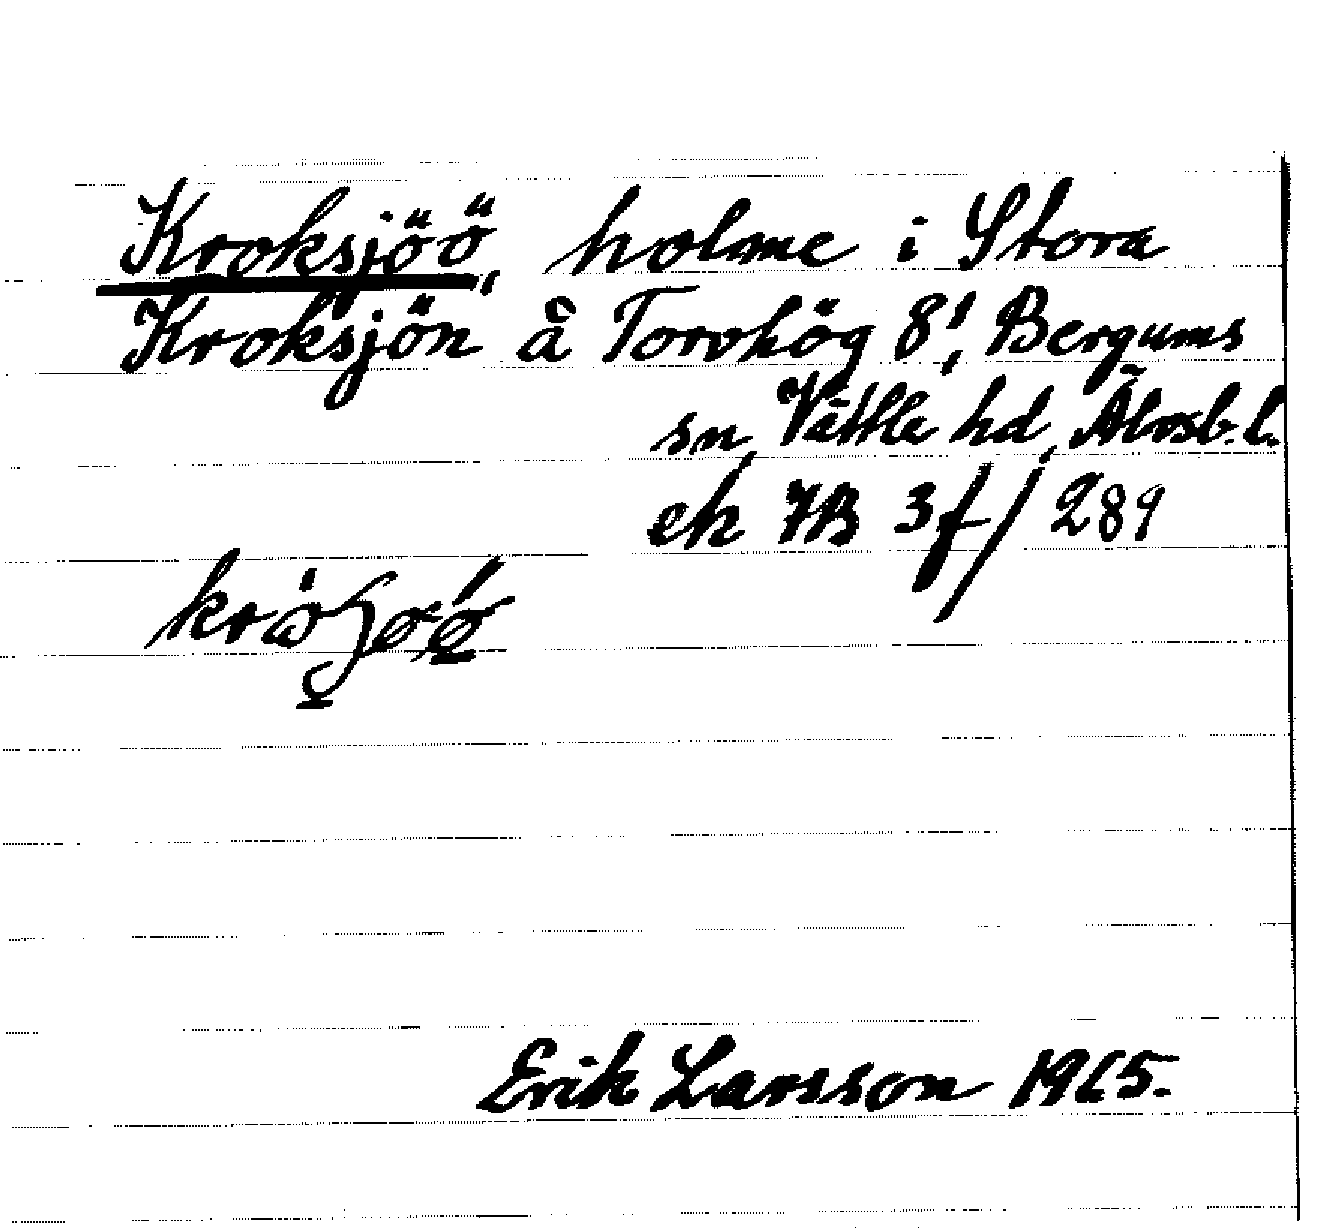 Kroksjöö, holme i Stora
Kroksjön å Torvhög 8!, Bergums
sn, Vättle hd, Älvsb. l.
ek 7B 3f/289
Erik Larsson 1965.